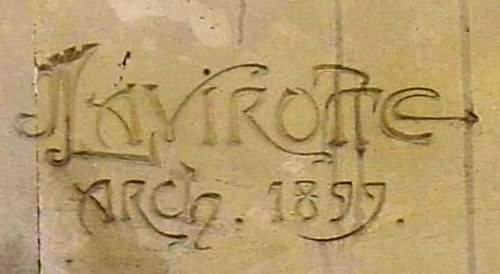 J LAVIROTTE
ARCh. 1899.